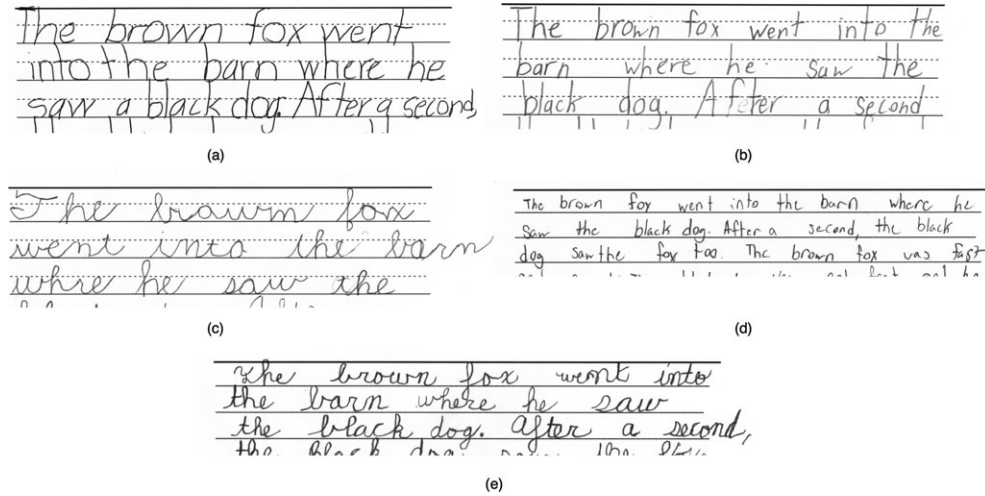 The brown fox went
into the barn where he
saw a black dog. After a second,
(a)
The brown fox went into the
barn where he saw the
black dog. After a second
(b)
The brown fox
went into the barn
whre he saw the
(c)
The brown fox went into the barn where he
saw the black dog. After a second, the black
dog saw the fox too. The brown fox was fast
(d)
The brown fox went into
the barn where he saw
the black dog. After a second,
the black dog
(e)